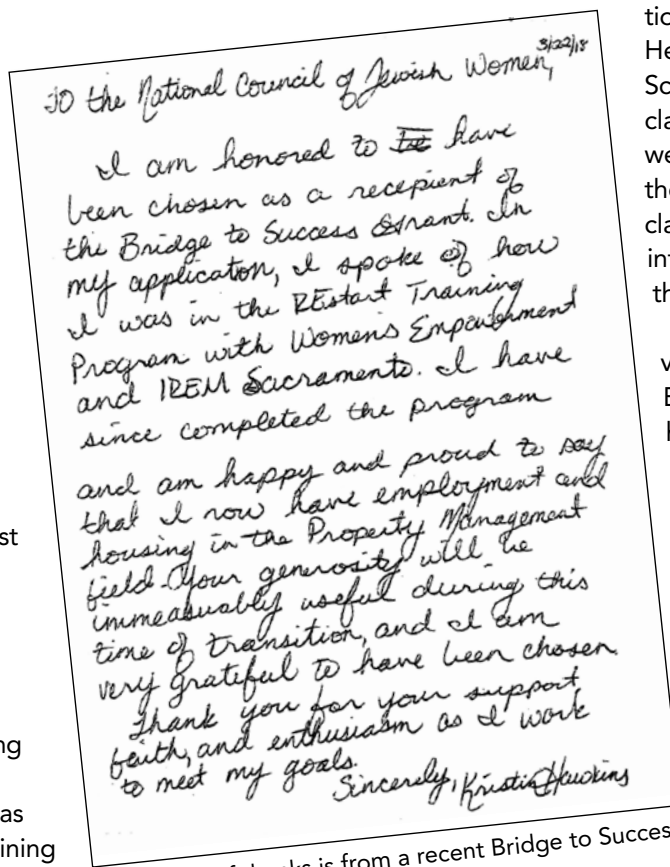 3/22/18
To the National Council of Jewish Women,
I am honored to have
been chosen as a recepient of
the Bridge to Success Grant. In
my application, I spoke of how
I was in the REstart Training
Program with Womens Empowerment
and IREM Sacramento. I have
since completed the program
and am happy and proud to say
that I now have employment and
housing in the Property Management
field. Your generosity will be
immeasuably useful during this
time of transition, and I am
very grateful to have been chosen.
Thank you for your support
faith, and enthusiasm as I work
to meet my goals.
Sincerely, Kristin Hawkins
is from a recent Bridge to Succes
st
ng
as
ining
tio
He
So
cla
we
the
cla
int
th